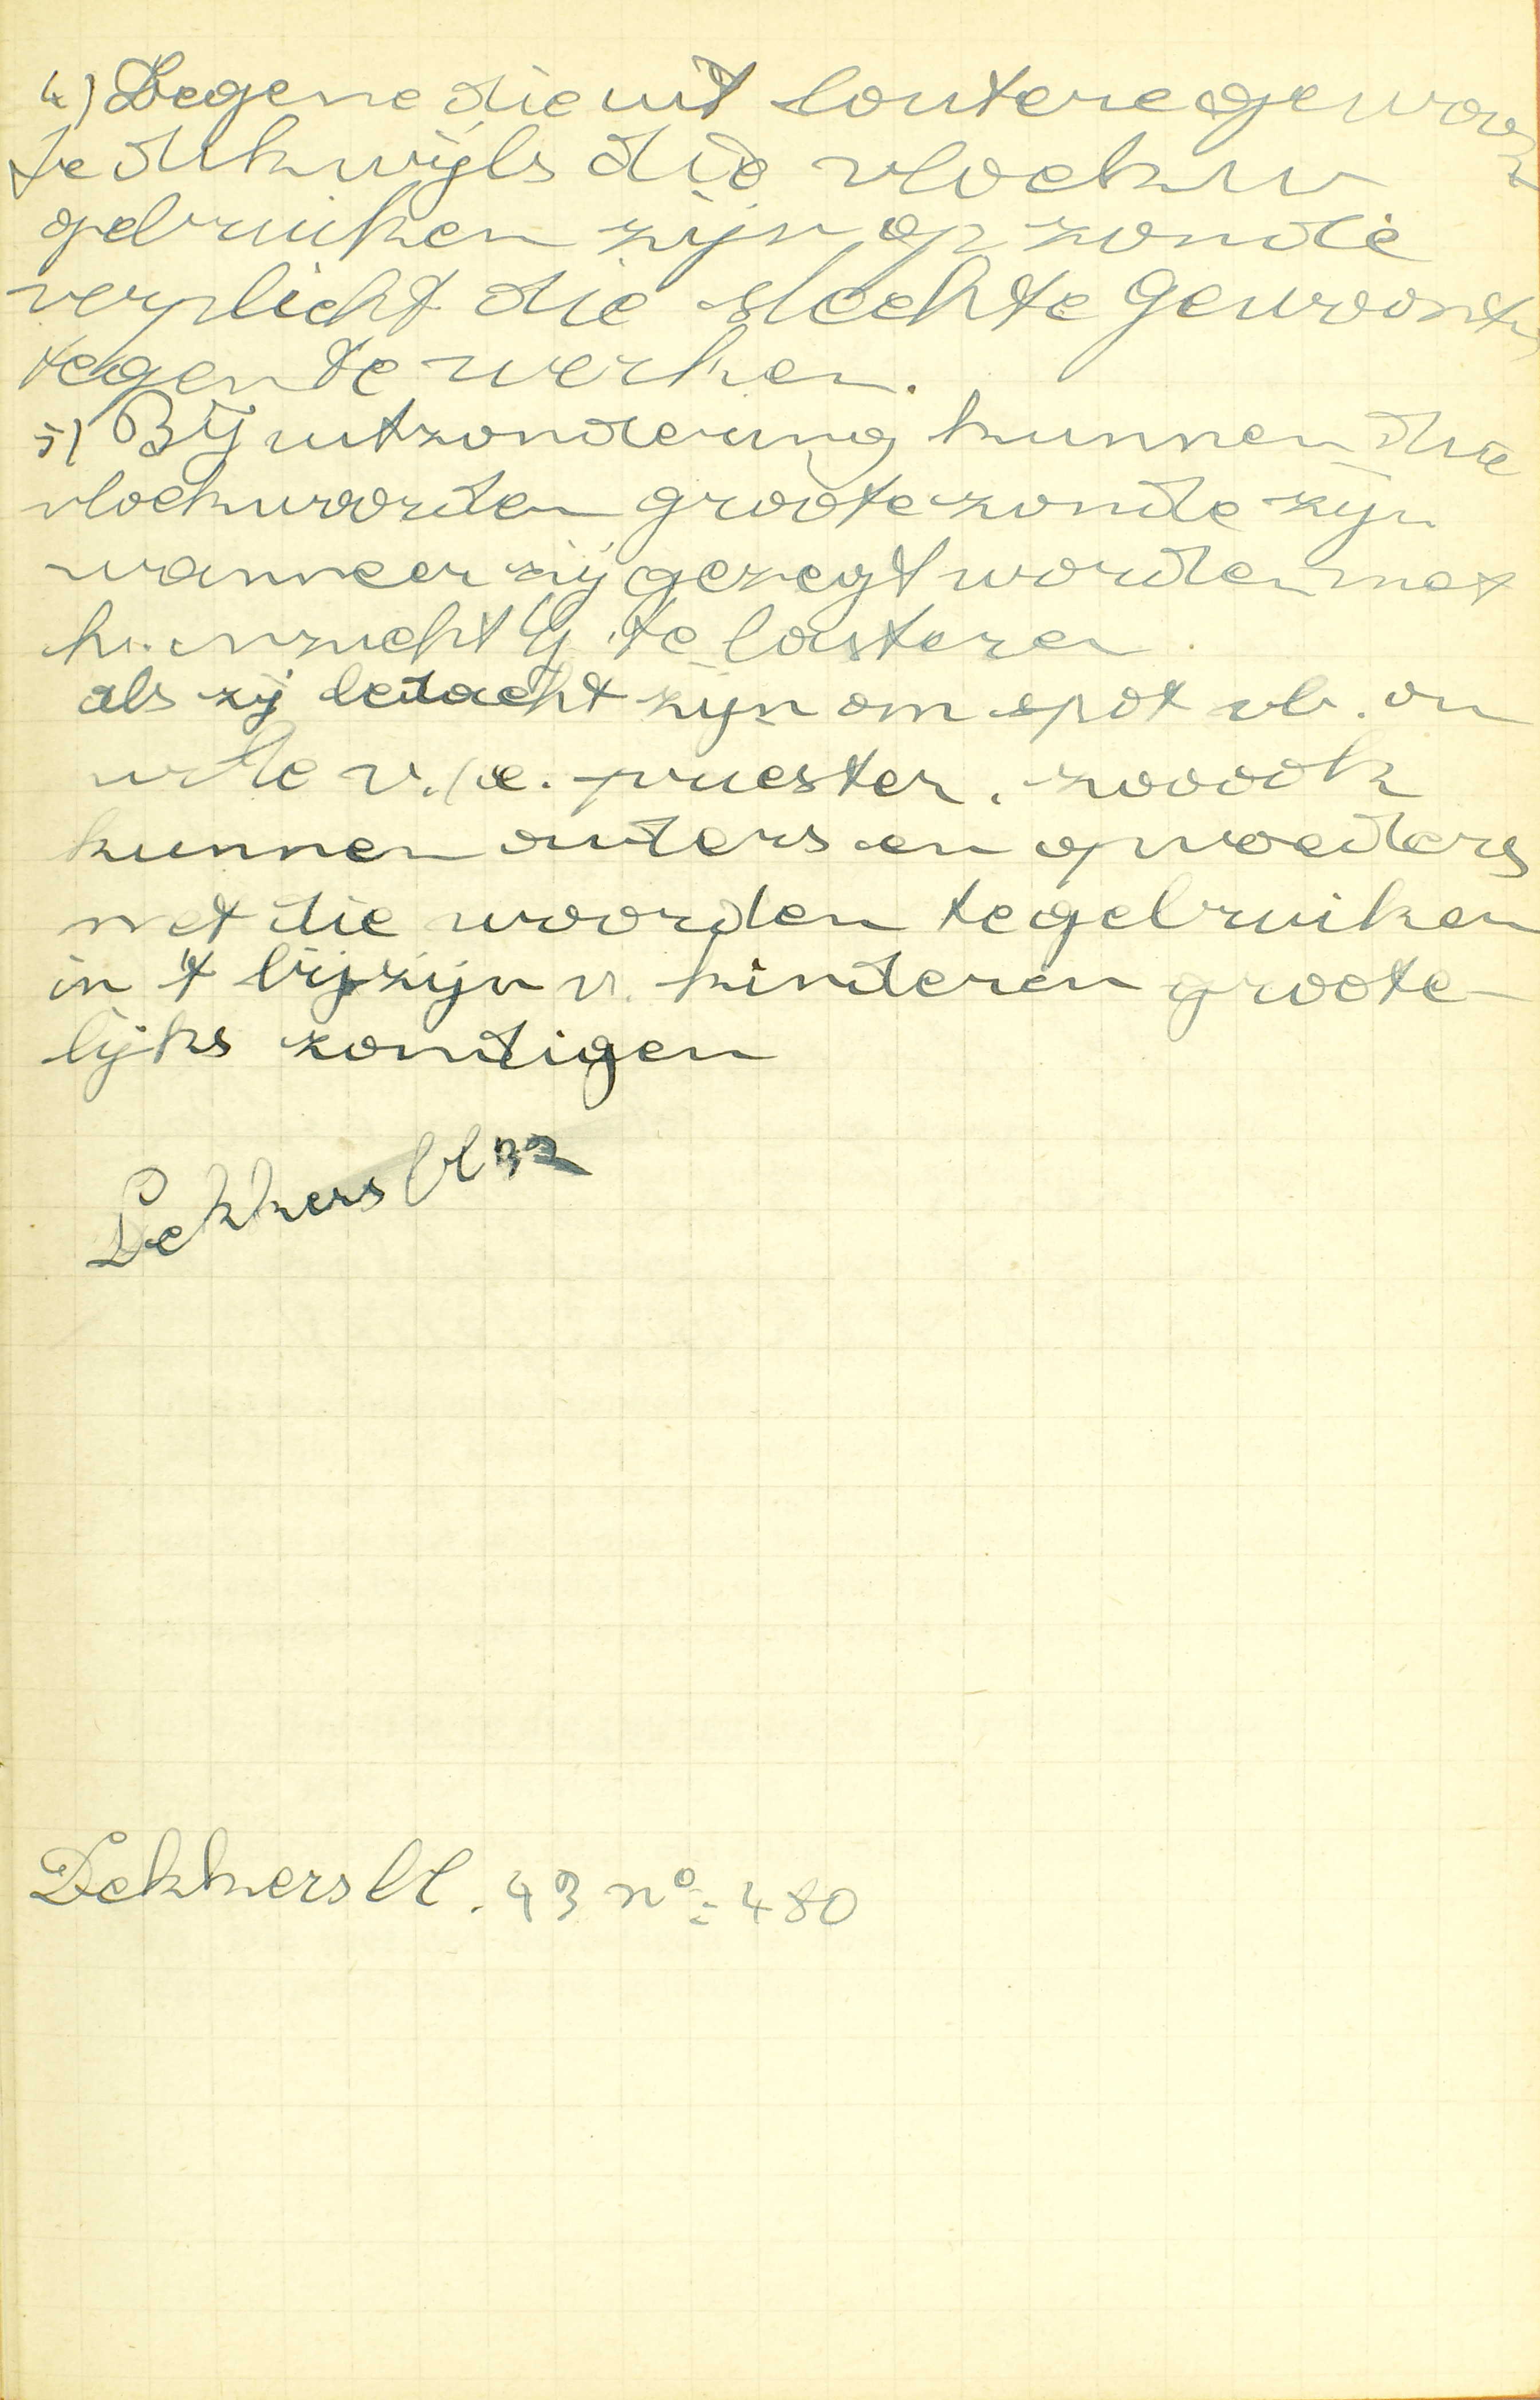 4) Degene die uit loutere gewoon
te dikwijls die vloeken
gebruiken zijn op zonde
verplicht die slechte gewoonte
tegen te werken.
5) Bij uitzondering kunnen die
vloekwoorden groote zonde zijn
wanneer zij gezegt worden met
te lasteren
als zij bedacht zijn om spot vb. on
v./e. priester. zooook
kunnen ouders en opvoeders
met die woorden te gebruiken
in 't bijzijn v. kinderen groote-
lijks zondigen
Dekkers bl 32
Dekkers bl. 43 n° 480